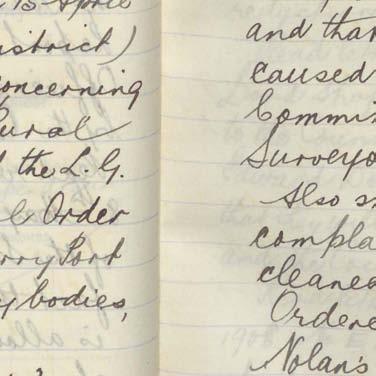 15 April
istrict)
oncerning
ural
the L. G.
& Order
rry Port
y bodies,
and that
caused
Commi
Surveyo
Also s
compla
cleaned
Ordere
Nolan's